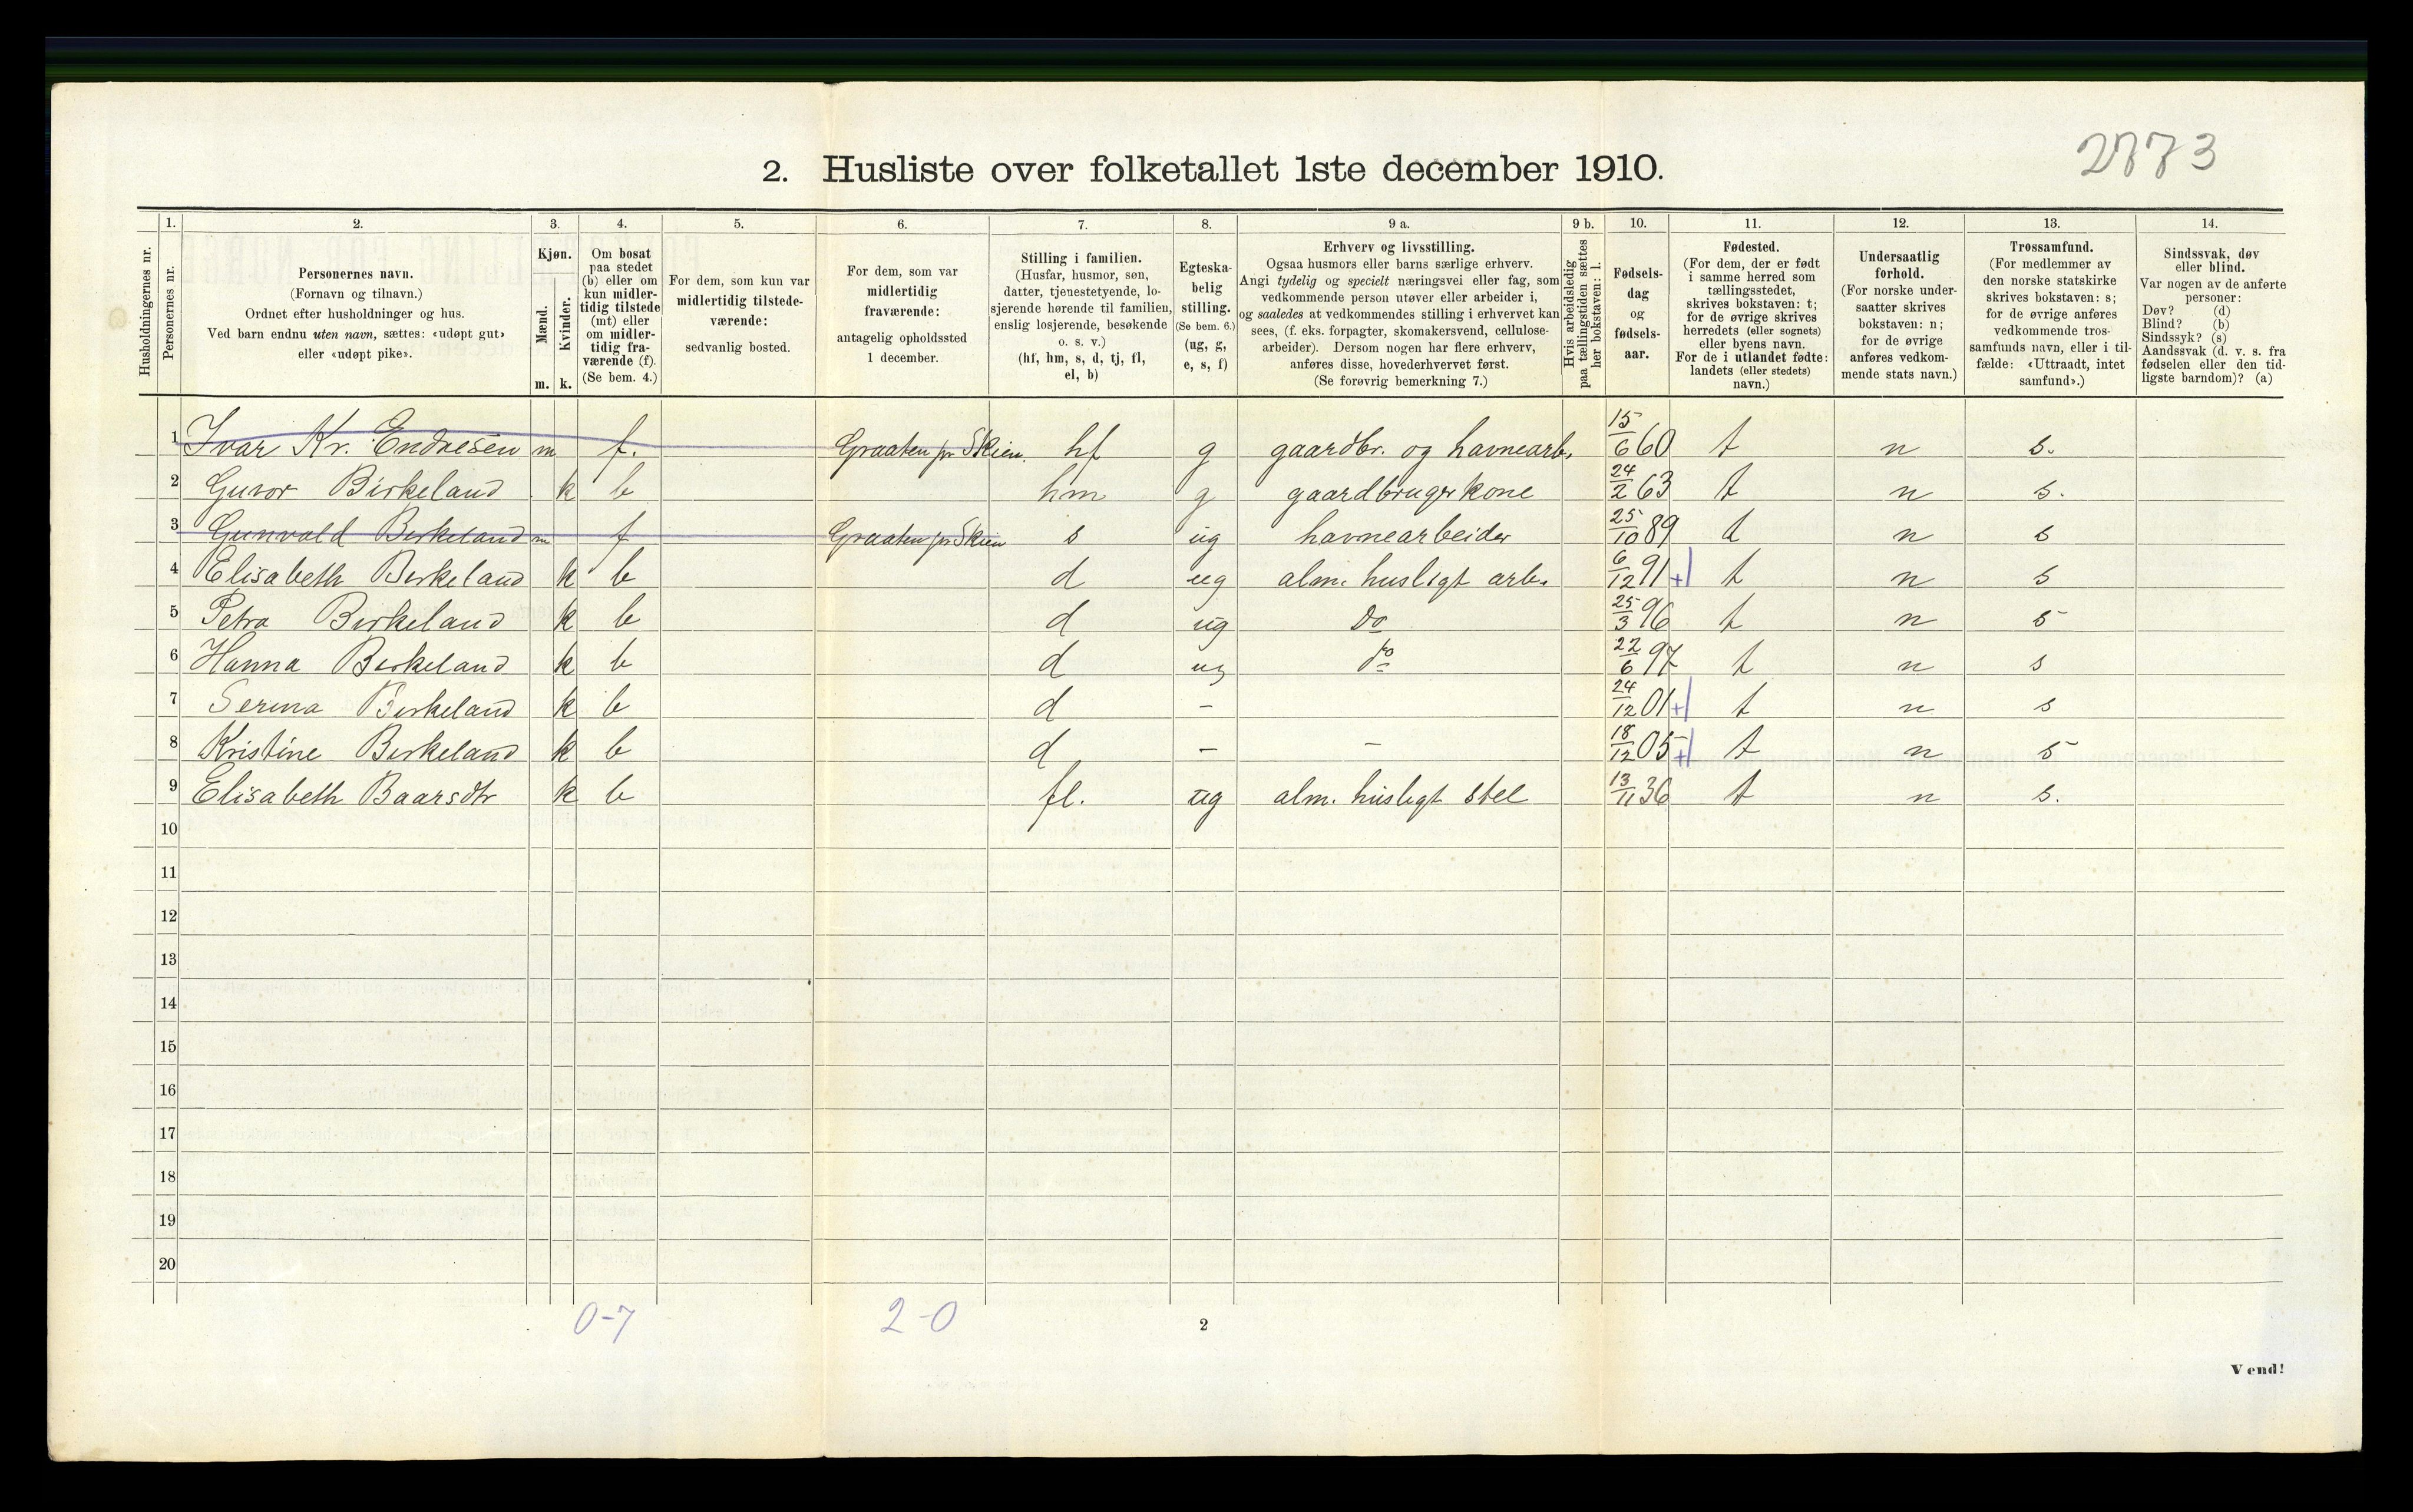 2773
2. Husliste over folketallet 1ste december 1910.
Husholdningernes nr.
1. Personernes nr.
2. Personernes navn.
(Fornavn og tilnavn.)
Ordnet efter husholdninger og hus.
Ved barn endnu uten navn, sættes: «udøpt gut»
eller «udøpt pike».
3. Kjøn.
Mænd. m.
Kvinder. k.
4. Om bosat
paa stedet
(b) eller om
kun midler-
tidig tilstede
(mt) eller
om midler-
tidig fra-
værende (f).
(Se bem. 4.)
5. For dem, som kun var
midlertidig tilstede-
værende:
sedvanlig bosted.
6. For dem, som var
midlertidig
fraværende:
antagelig opholdssted
1 december.
7. Stilling i familien.
(Husfar, husmor, søn,
datter, tjenestetyende, lo-
sjerende hørende til familien,
enslig losjerende, besøkende
o. s. v.)
(hf, hm, s, d, tj, fl,
el, b)
8. Egteska-
belig
stilling.
(Se bem. 6.)
(ug, g,
e, s, f)
9 a. Erhverv og livsstilling.
Ogsaa husmors eller barns særlige erhverv.
Angi tydelig og specielt næringsvei eller fag, som
vedkommende person utøver eller arbeider i,
og saaledes at vedkommendes stilling i erhvervet kan
sees, (f. eks. forpagter, skomakersvend, cellulose-
arbeider). Dersom nogen har flere erhverv,
anføres disse, hovederhvervet først.
(Se forøvrig bemerkning 7.)
9 b. Hvis arbeidsledig
paa tællingstiden sættes
her bokstaven: l.
10. Fødsels-
dag
og
fødsels-
aar.
11. Fødested.
(For dem, der er født
i samme herred som
tællingsstedet,
skrives bokstaven: t;
for de øvrige skrives
herredets (eller sognets)
eller byens navn.
For de i utlandet fødte:
landets (eller stedets)
navn.)
12. Undersaatlig
forhold.
(For norske under-
saatter skrives
bokstaven: n;
for de øvrige
anføres vedkom-
mende stats navn.)
13. Trossamfund.
(For medlemmer av
den norske statskirke
skrives bokstaven: s;
for de øvrige anføres
vedkommende tros-
samfunds navn, eller i til-
fælde: «Uttraadt, intet
samfund».)
14. Sindssvak, døv
eller blind.
Var nogen av de anførte
personer:
Døv? (d)
Blind? (b)
Sindssyk? (s)
Aandssvak (d. v. s. fra
fødselen eller den tid-
ligste barndom)? (a)
1 Ivar Kr. Endresen m f. Graaten pr Skien. hf g gaardbr. og havnearb. 15/6 60 t n s.
2 Guror Birkeland k b hm g gaardbruger kone 24/2 63 t n s.
3 Gunvald Berkeland m f Graaten pr Skien s ug havnearbeider 25/10 89 t n s
4 Elisabeth Berkeland k b d ug alm. husligt arb. 6/12 91 + t n s
5 Petra Birkeland k b d ug Do 25/3 96 t n s
6 Hanna Berkeland k b d ug do 22/6 97 t n s
7 Serina Berkeland k b d - 24/12 01 + t n s
8 Kristine Berkeland k b d - - 18/12 05 + t n s
9 Elisabeth Baarsdtr k b fl. ug alm. husligt stel 13/11 36 t n s.
10
11
12
13
14
15
16
17
18
19
20
0-7 2-0
2
Vend!